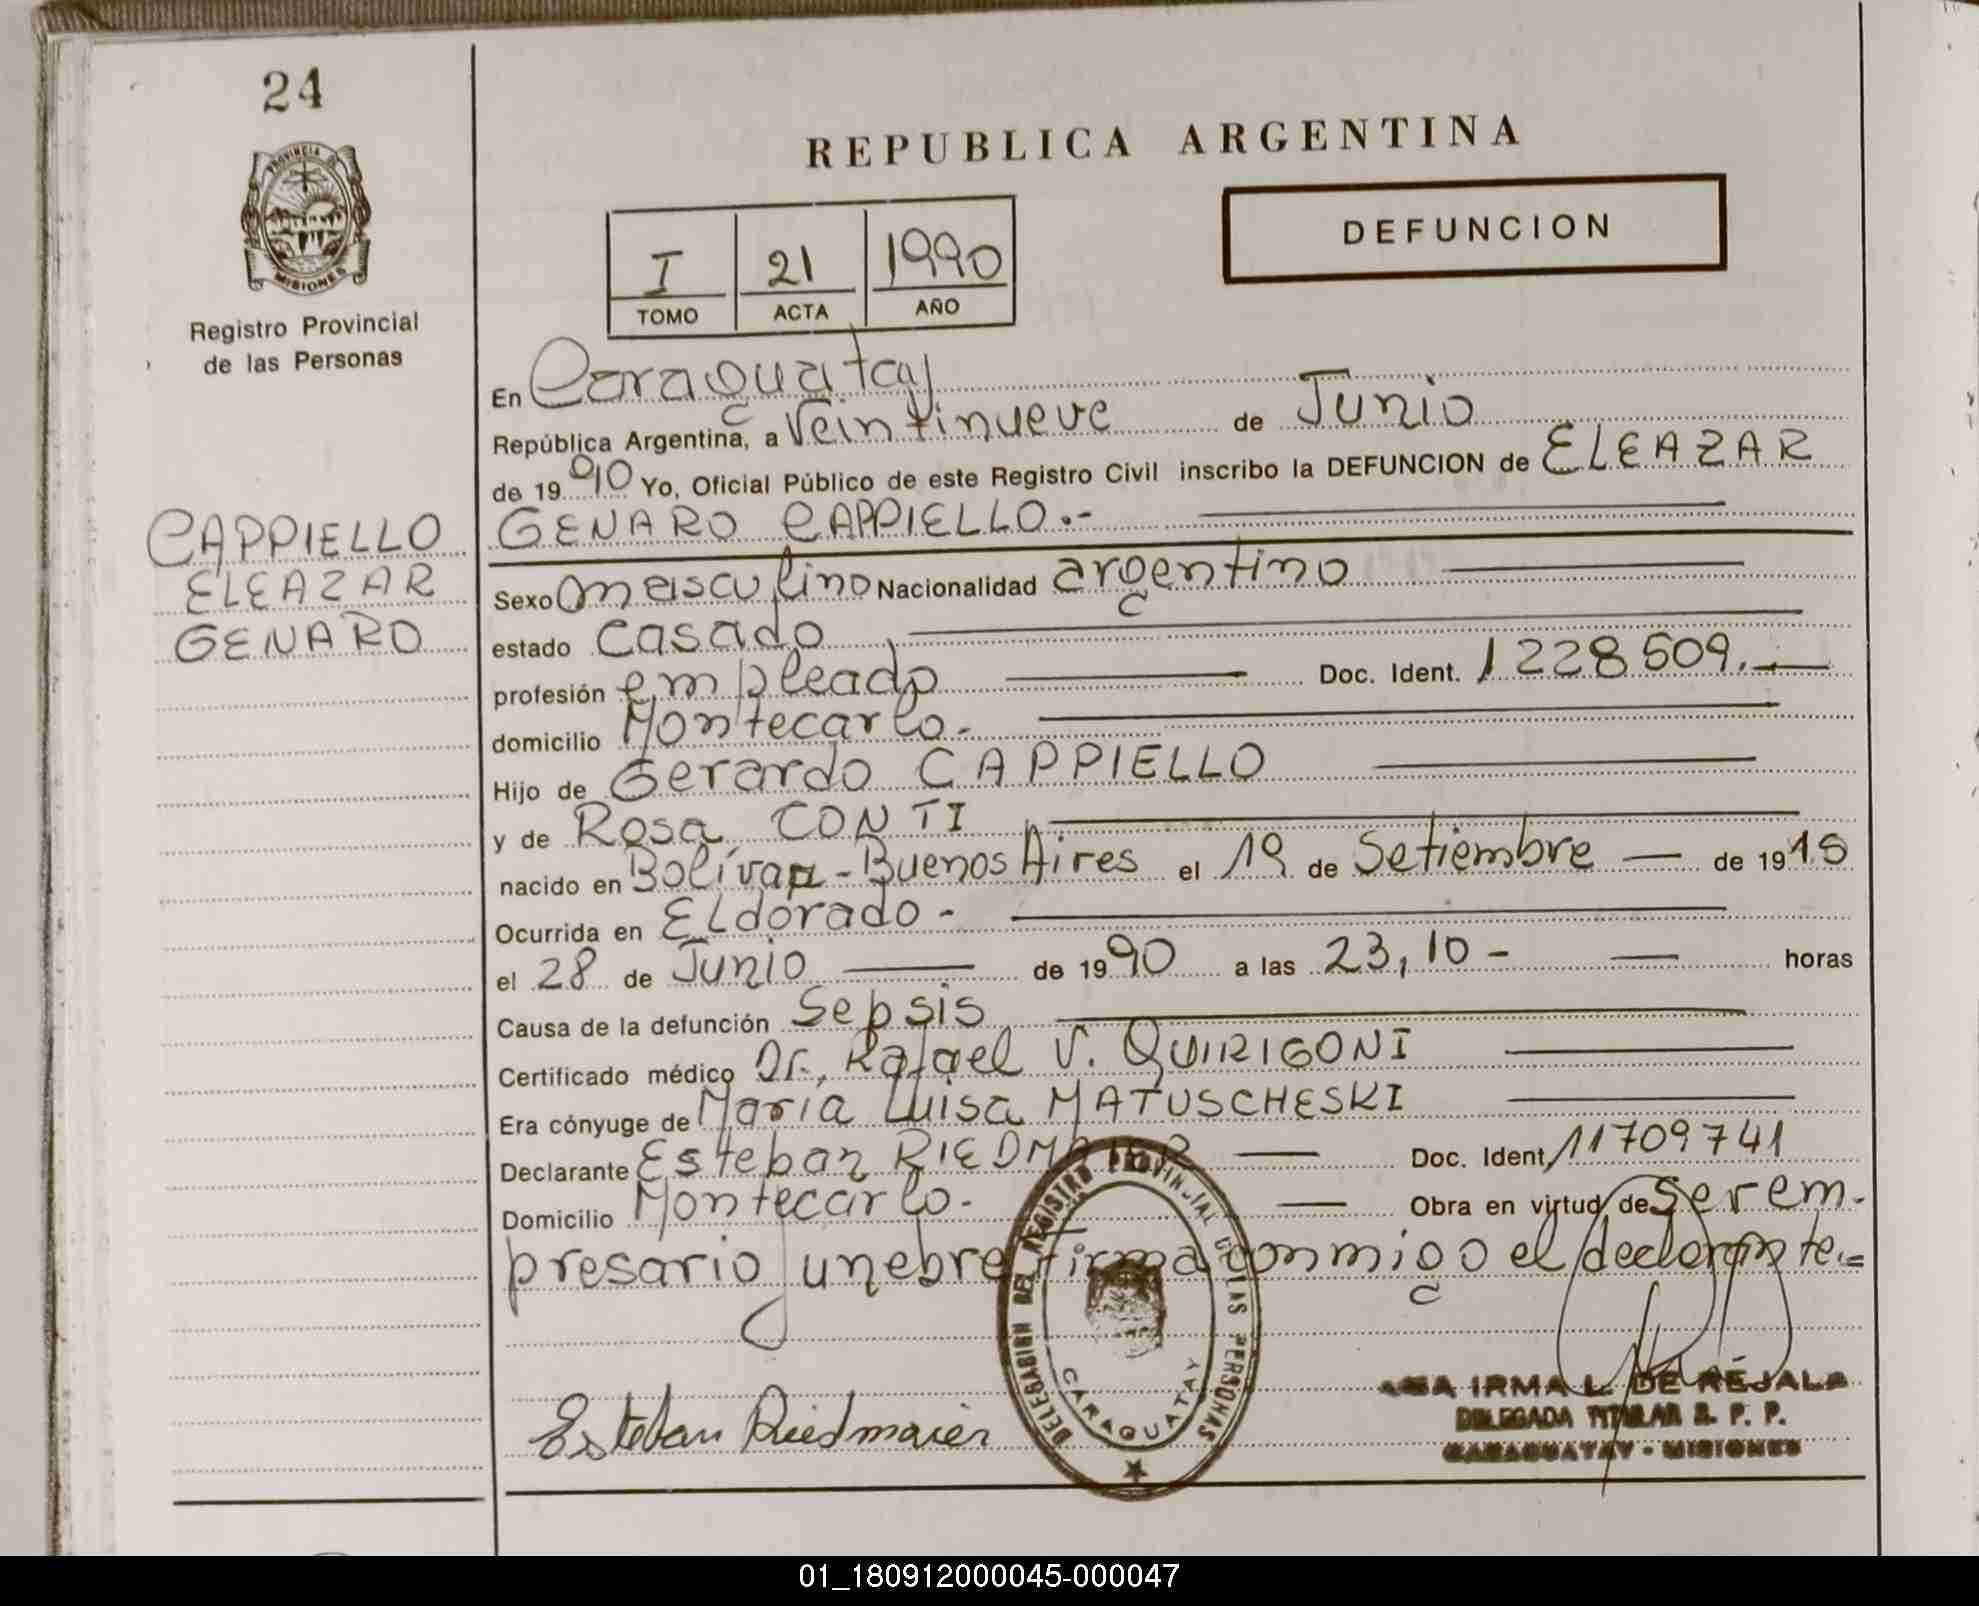 24
PROVINCIA DE
MISIONES
Registro Provincial
de las Personas
CAPPIELLO
ELEAZAR
GENARO
REPUBLICA ARGENTINA
I 21 1990
TOMO ACTA AÑO
DEFUNCION
En Caraguatay
República Argentina, a Veintinueve de Junio
de 1990 Yo, Oficial Público de este Registro Civil inscribo la DEFUNCION de ELEAZAR
GENARO CAPPIELLO.-
Sexo masculino Nacionalidad argentino
estado casado
profesión empleado Doc. Ident. 1228509.-
domicilio Montecarlo.-
Hijo de Gerardo CAPPIELLO
y de Rosa CONTI
nacido en Bolívar - Buenos Aires el 19 de Setiembre de 19
Ocurrida en ELdorado -
el 28 de Junio de 1990 a las 23,10 - horas
Causa de la defunción Sepsis
Certificado médico Dr. Rafael V. QUIRIGONI
Era cónyuge de María Luisa MATUSCHESKI
Declarante Esteban RIEDMAIER Doc. Ident. 11709741
Domicilio Montecarlo.- Obra en virtud de Ser em-
presario funebre firma conmigo el declarante.=
DELEGACION DEL REGISTRO PROVINCIAL DE LAS PERSONAS
CARAGUATAY
Esteban Riedmaier
ANA IRMA L. DE REJALA
DELEGADA TITULAR R. P. P.
CARAGUATAY - MISIONES
01_180912000045-000047